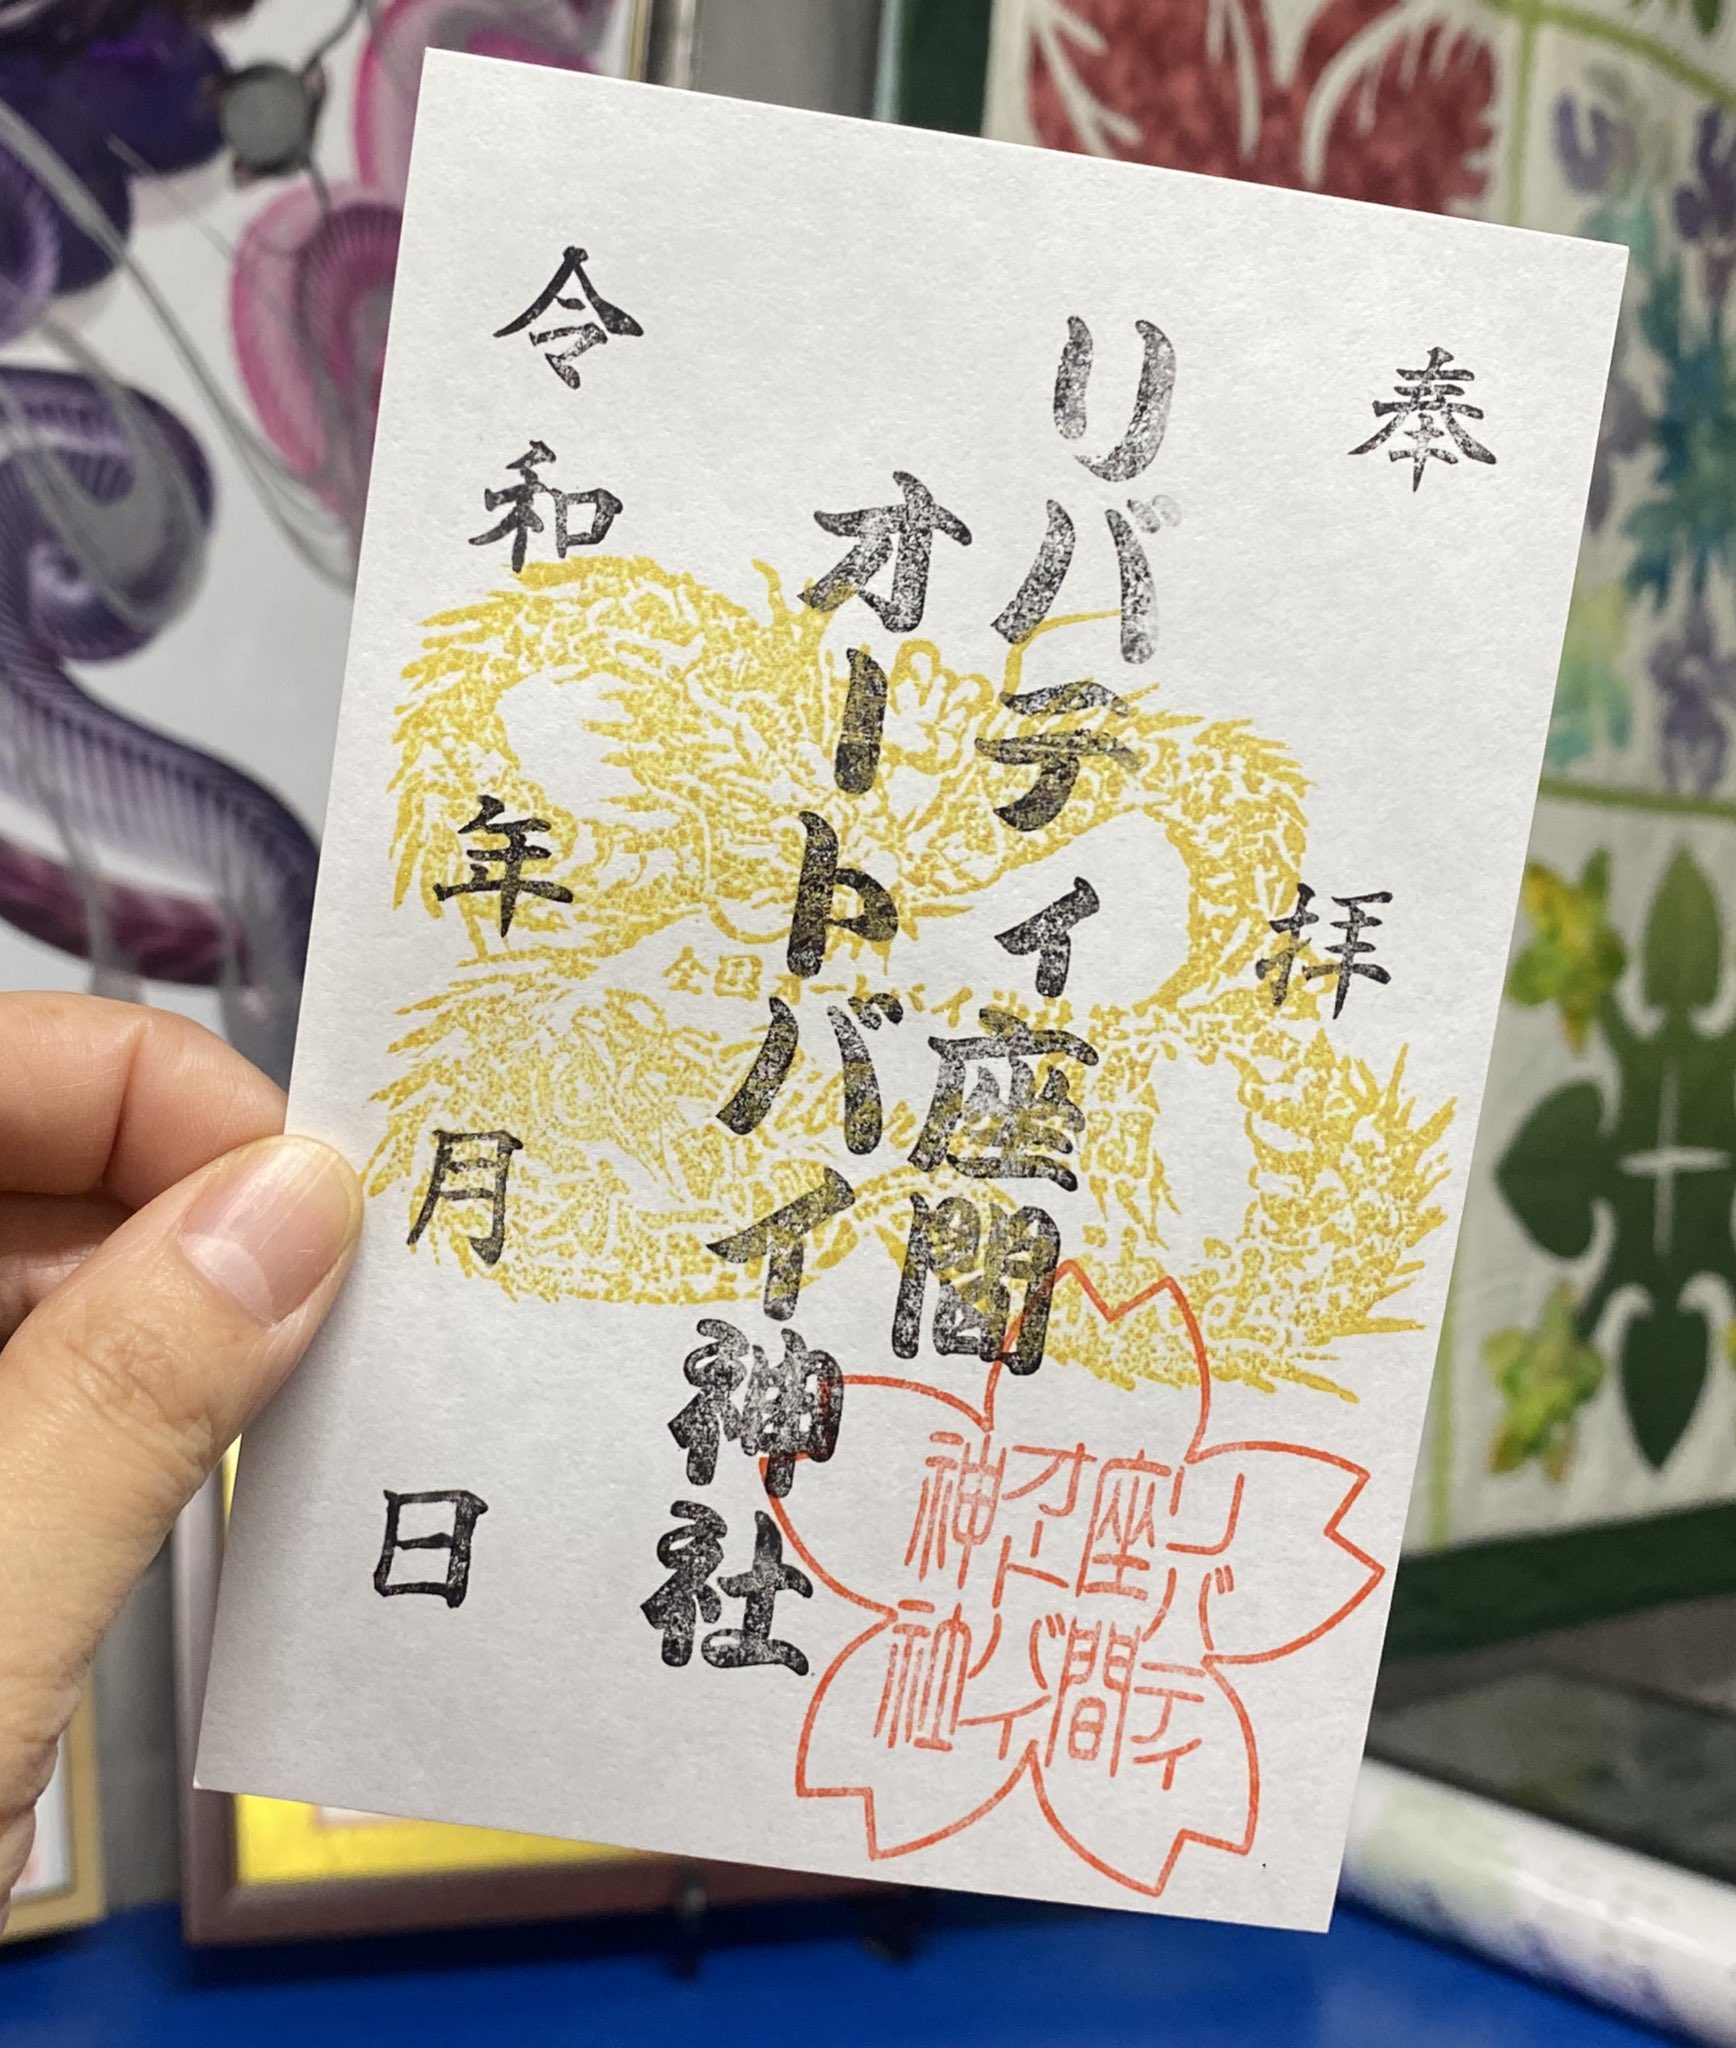 奉拝
リバティ座間
オートバイ神社
令和 年 月 日
全国オートバイ神社
リバティ
座間
オートバイ
神社